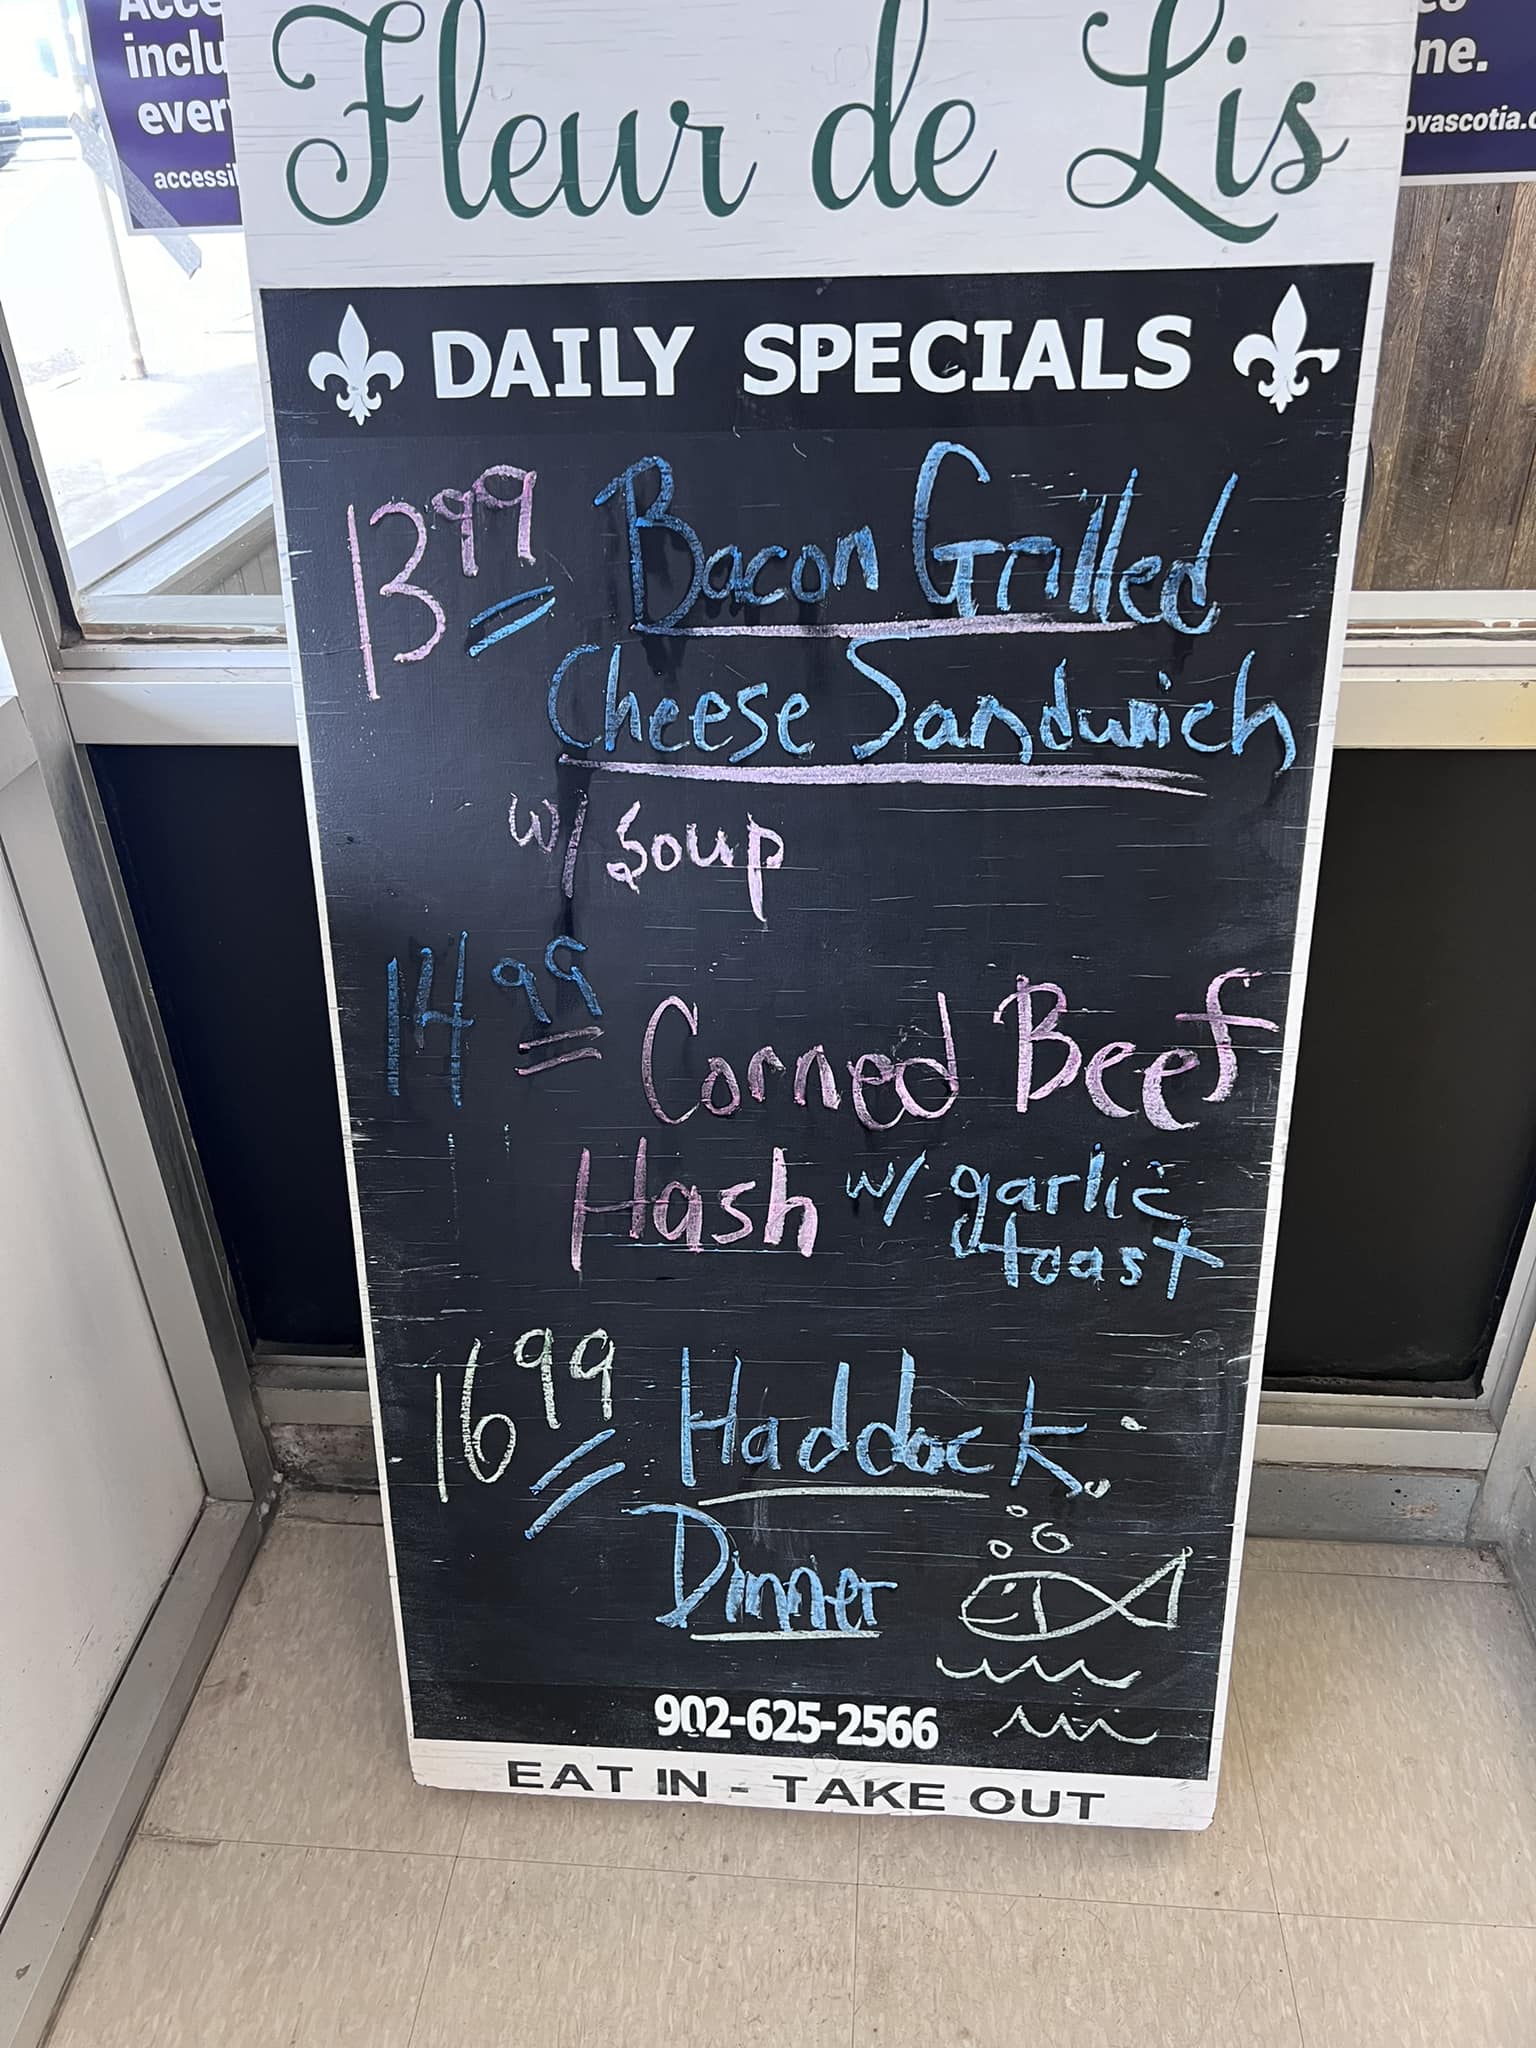 Acce
inclu
every
accessi
ne.
ovascotia.c
Fleur de Lis
DAILY SPECIALS
13.99 Bacon Grilled
Cheese Sandwich
w/ Soup
14.99 Corned Beef
Hash w/ garlic
toast
16.99 Haddock
Dinner
902-625-2566
EAT IN - TAKE OUT